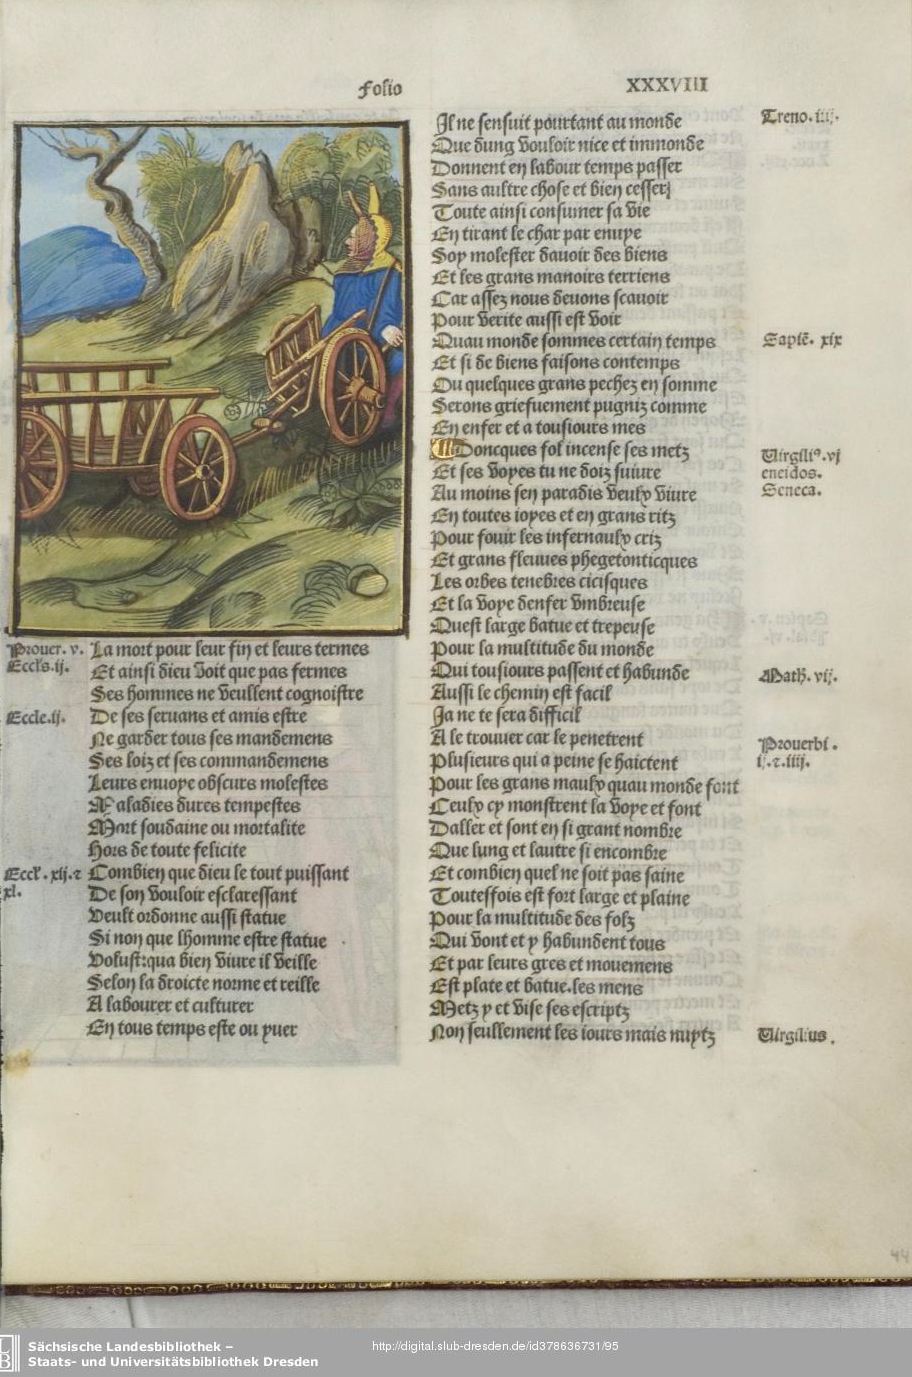 Folio
XXXVIII
Prouer. v.
La mort pour leur fin et leurs termes
Eccls. ij.
Et ainsi dieu voit que pas fermes
Ses hommes ne veullent cognoistre
Eccle. ij.
De ses seruans et amis estre
Ne garder tous ses mandemens
Ses loiz et ses commandemens
Leurs enuoye obscurs molestes
Maladies dures tempestes
Mort soudaine ou mortalite
Hors de toute felicite
Eccl. xlj. ⁊
xl.
Combien que dieu le tout puissant
De son vouloir esclaressant
Veult ordonne aussi statue
Si non que lhomme estre statue
Volust:qua bien viure il veille
Selon la droicte norme et reille
A labourer et culturer
En tous temps este ou yuer
Il ne sensuit pourtant au monde
Treno. iij.
Que dung vouloir nice et immonde
Donnent en labour temps passer
Sans aultre chose et bien cesser
Toute ainsi consumer sa vie
En tirant le char par enuye
Soy molester dauoir des biens
Et les grans manoirs terriens
Car assez nous deuons scauoir
Pour verite aussi est voir
Quau monde sommes certain temps
Sapiẽ. xix
Et si de biens faisons contemps
Ou quelques grans pechez en somme
Serons griefuement pugniz comme
En enfer et a tousiours mes
Doncques fol incense ses metz
Virgiliꝰ. vj
eneidos.
Seneca.
Et ses voyes tu ne doiz suiure
Au moins sen paradis veulx viure
En toutes ioyes et en grans ritz
Pour fouir les infernaulx criz
Et grans fleuues phegetonticques
Les orbes tenebres cicisques
Et la voye denfer vmbreuse
Quest large batue et trepeuse
Pour la multitude du monde
Qui tousiours passent et habunde
Math. vij.
Aussi le chemin est facil
Ja ne te sera difficil
A le trouuer car le penetrent
Prouerbi.
ij. ⁊. iiij.
Plusieurs qui a peine se haictent
Pour les grans maulx quau monde font
Ceulx cy monstrent la voye et font
Daller et sont en si grant nombre
Que lung et lautre si encombre
Et combien quel ne soit pas saine
Toutesfois est fort large et plaine
Pour la multitude des folz
Qui vont et y habundent tous
Et par leurs gres et mouemens
Est plate et batue.les mens
Metz y et vise ses escriptz
Non seullement les iours mais nuytz
Virgilius.
44
Sächsische Landesbibliothek –
Staats- und Universitätsbibliothek Dresden
http://digital.slub-dresden.de/id378636731/95